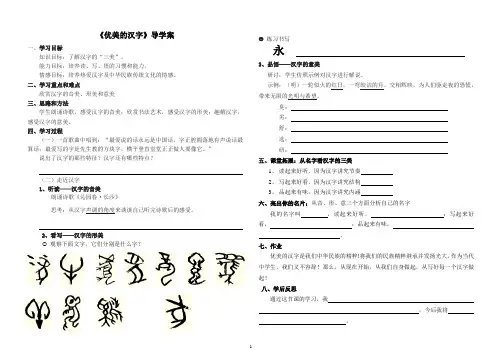 《优美的汉字》导学案
一、学习目标
知识目标：了解汉字的“三美”。
能力目标：培养读、写、用的习惯和能力。
情感目标：培养热爱汉字及中华民族传统文化的情感。
二、学习重点和难点
欣赏汉字的音美、形美和意美
三、思路和方法
学生朗诵诗歌，感受汉字的音美；欣赏书法艺术，感受汉字的形美；趣解汉字，
感受汉字的意美。
四、学习过程
（一）一首歌曲中唱到：“最爱说的话永远是中国话，字正腔圆落地有声说话最
算话；最爱写的字是先生教的方块字，横平竖直堂堂正正做人要像它。”
说出了汉字的那些特征？汉字还有哪些特点？
（二）走近汉字
1、听读——汉字的音美
朗诵诗歌《沁园春·长沙》
思考：从汉字声调的角度来谈谈自己听完诗歌后的感受。
2、看写——汉字的形美
观察下面文字，它们分别是什么字？
练习书写
永
3、品悟——汉字的意美
研讨：学生仿照示例对汉字进行解说。
示例：（明）一轮似火的红日，一弯皎洁的月，交相辉映，为人们驱走夜的恐慌，
带来无限的光明与希望。
臭：
劣：
好：
道：
研：
五、课堂拓展：从名字看汉字的三美
1、读起来好听。因为汉字讲究节奏
2、写起来好看。因为汉字讲究结构
3、品起来有味。因为汉字讲究内涵
六、亮出你的名片：从音、形、意三个方面分析自己的名字
我的名字叫，读起来好听，；写起来好
看，，品起来有味，
。
七、作业
优美的汉字是我们中华民族的精神！将我们的民族精粹继承并发扬光大，作为当代
中学生，我们义不容辞！那么，从现在开始，从我们自身做起，从写好每一个汉字做
起！
八、学后反思
通过这节课的学习，我
，今后我将
。
1